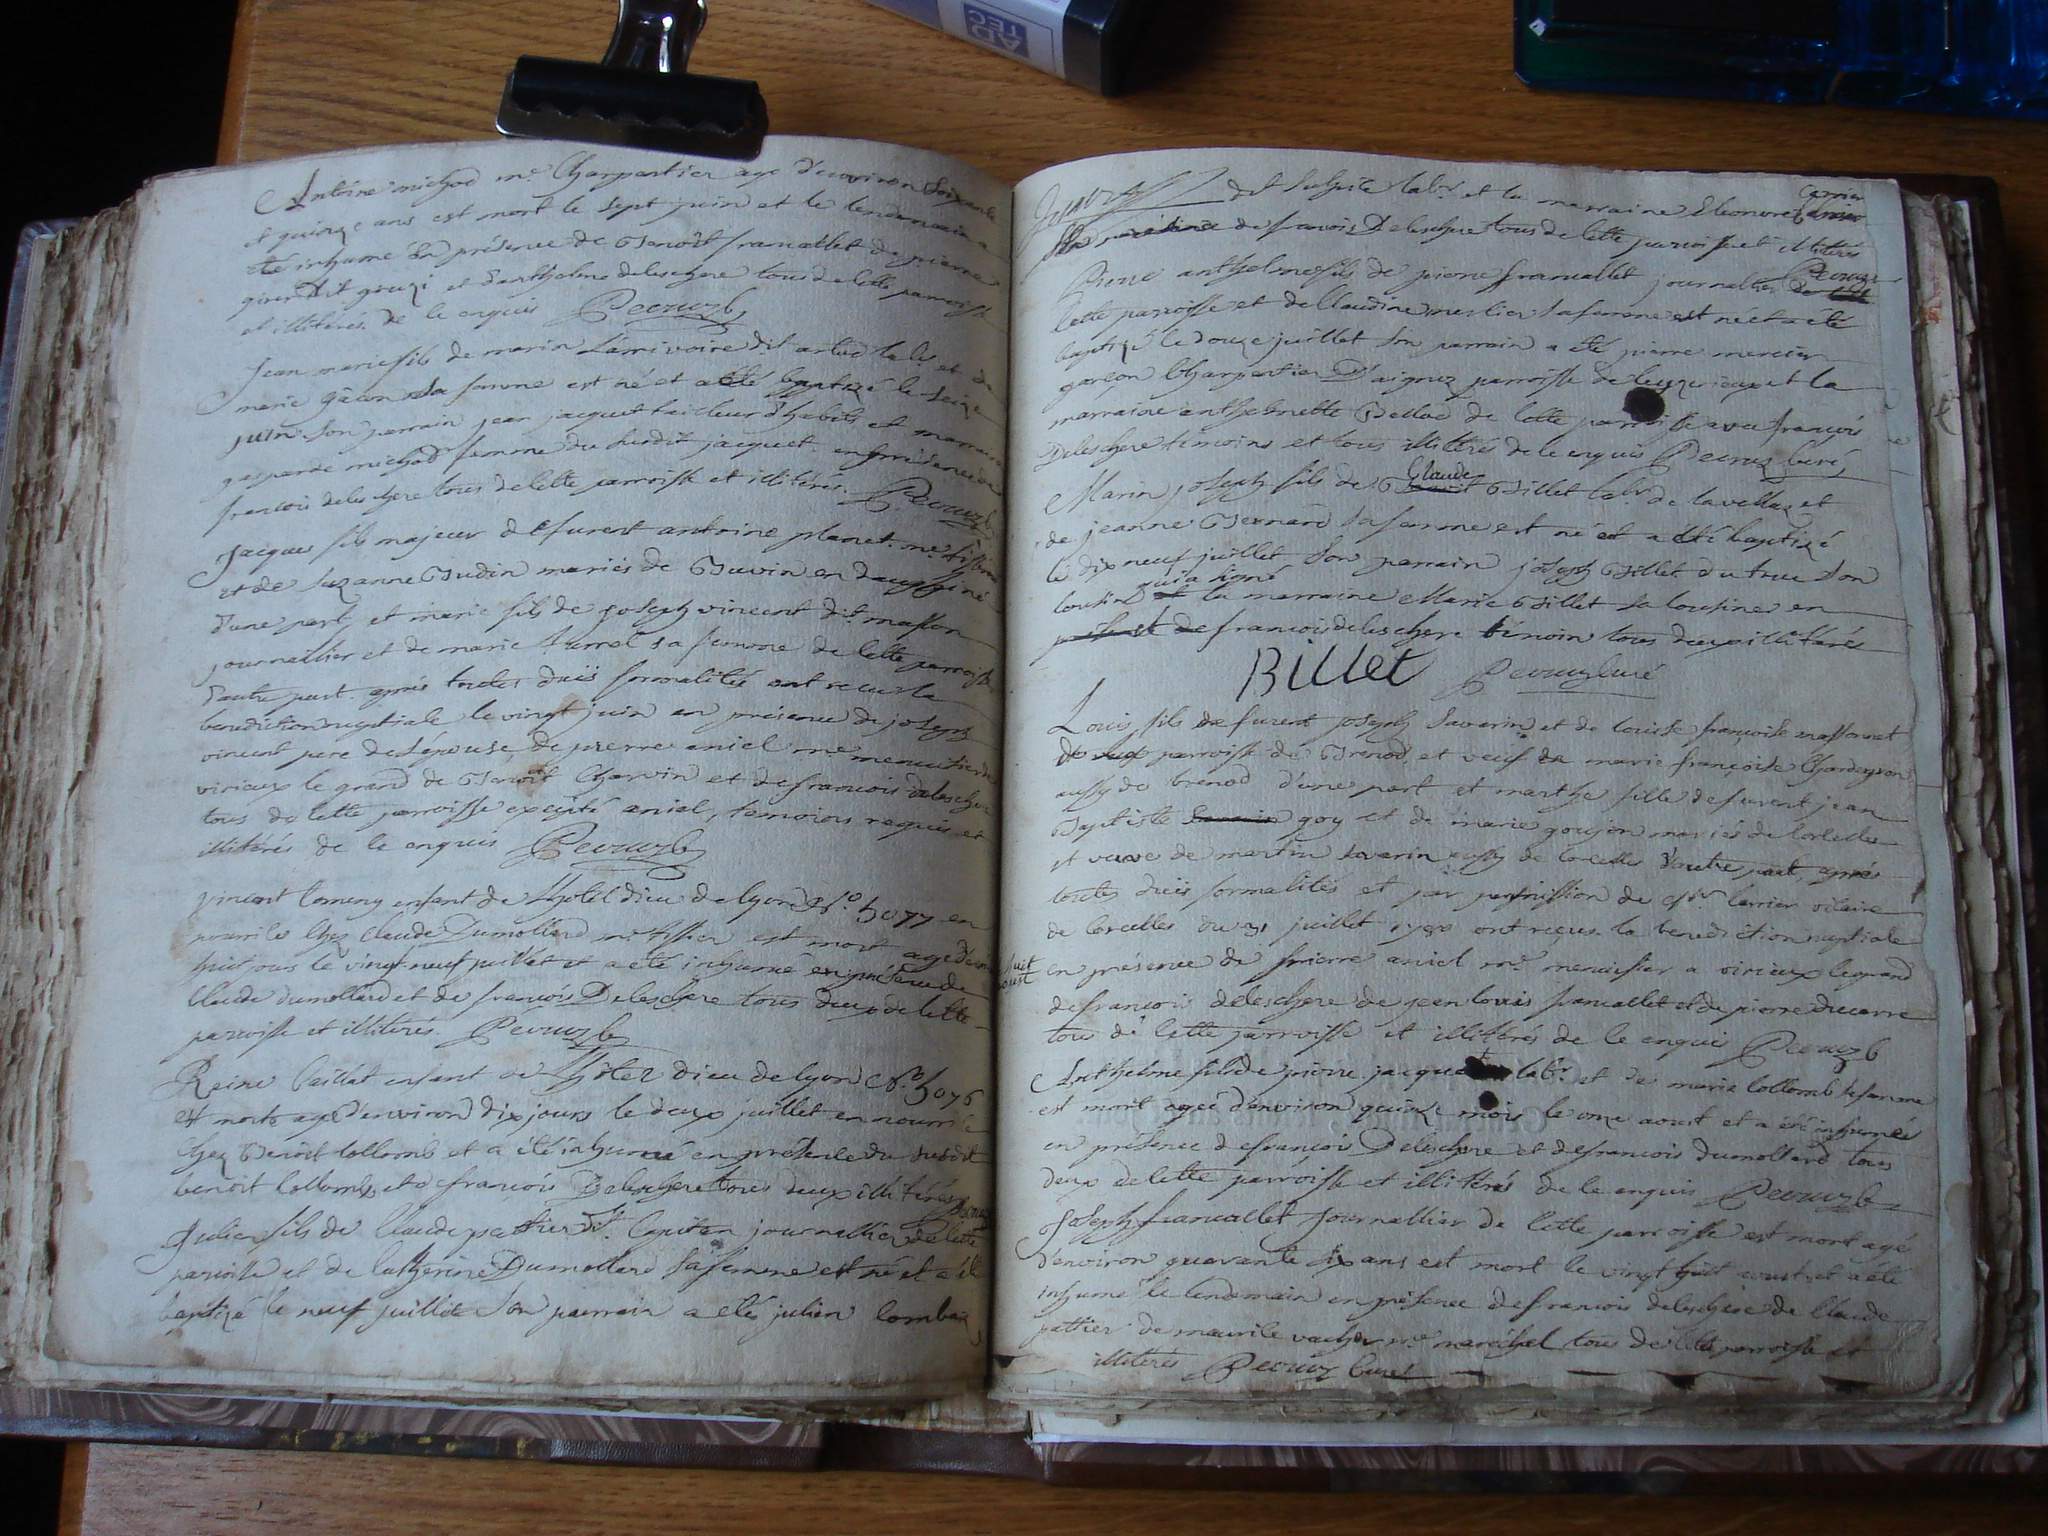 AD
TEC
Antoine michod me Charpentier age d'environ Soixante
et quinze ans est mort le sept juin et le lendemain a
été inhumé En présence de Benoit francallet de pierre
girer dit gouzi et d'anthelme deleschere tous de cette parroisse
et illiterés de ce enquis Pecruz C
Jean marie fils de marin Lamivoire dit labr et de
marie sa femme est né et a été baptizé le seize
juin Son parrain jean jacquet tailleur d'habits et marraine
gasparde michod femme du susdit jacquet en présence de
francois deleschere tous de cette parroisse et illiterés Pecruz C
Jacques fils majeur de furent antoine planet me tisserand
et de suzanne Budin mariés de Buvin en dauphiné
d'une part et marie fils de joseph vincent dit masson
journallier et de marie sa femme de cette parroisse
d'autre part après toutes duës formalités ont reçu la
benediction nuptiale le vingt juin en présence de joseph
vincent pere de l'épouse, de pierre aniel me menuisier de
virieux le grand de Benoit Charvin et de francois deleschere
tous de cette parroisse excepté aniel, temoins requis et
illitérés de ce enquis Pecruz C
vincent enfant de l'hotel dieu de lyon No 5077 en
nourrice chez claude Dumollard me tissier est mort agé de
huit jours le vingt neuf juillet et a été inhumé en présence de
Claude dumollard et de francois Deleschere tous deux de cette
parroisse et illiterés Pecruz C
Reine enfant de l'hotel dieu de lyon No 5076
est morte age d'environ dix jours le deux juillet en nourrice
chez Benoit Collomb et a été inhumé en présence du susdit
benoit Collomb et de francois Deleschere tous deux illiterés Pecruz
Julien fils de Claude pattier dit Capitan journallier de cette
parroisse et de Catherine Dumollard sa femme est né et a été
baptizé le neuf juillet Son parrain a été julien lombar
dit labr et la marraine Eleonore Carrier
En présence de francois Deleschere tous de cette parroisse et illiterés
Pecruz
Pierre anthelme fils de pierre francallet journallier de
cette parroisse et de Claudine mercier sa femme est né et a été
baptizé le douze juillet Son parrain a été pierre mercier
garçon Charpentier D'aignoz parroisse de Ceyzerieux et la
marraine anthelmette de cette parroisse avec francois
Deleschere témoins et tous illiterés de ce enquis Pecruz Curé
Marin joseph fils de Claude Billet labr de lavellaz et
de jeanne Bernard sa femme est né et a été baptizé
le dix neuf juillet Son parrain joseph Billet du truc son
qui a signé
cousin et la marraine Marie Billet sa cousine en
présence de francois deleschere témoin tous deux illiterés
Billet Pecruz Curé
Louis fils de furent joseph Savarin et de louise françoise massonnet
parroisse de Brenod, et veuf de marie françoise Chardeyron
aussy de brenod d'une part et marthe fille de furent jean
Baptiste goy et de marie goujon mariés de Corcelles
et veuve de martin savarin aussy de corcelles d'autre part, après
toutes duës formalités et par permission de Mr Carrier vicaire
de Corcelles du 31 juillet 1780 ont reçus la benediction nuptiale
huit
aoust
en présence de pierre aniel me menuisier a virieux le grand
de francois deleschere de jean louis francallet et de pierre ducarre
tous de cette parroisse et illiterés de ce enquis Pecruz C
Anthelme fils de pierre jacquet labr et de marie Collomb sa femme
est mort agée d'environ quinze mois le onze aoust et a été inhumés
en présence de francois Deleschere et de francois dumollard tous
deux de cette parroisse et illiterés de ce enquis Pecruz C
Joseph francallet Journallier de cette parroisse est mort agé
d'environ quarante six ans est mort le vingt huit aoust et a été
inhumé le lendemain en présence de francois deleschere de Claude
pattier de maurile vacher me maréchal tous de cette parroisse et
illiterés Pecruz Curé